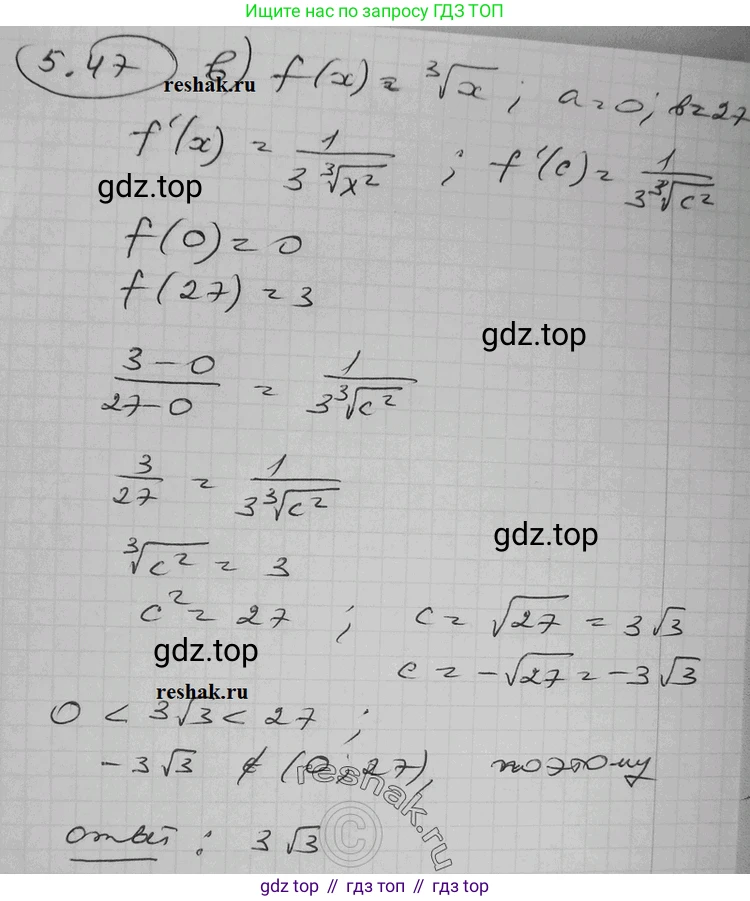 Ищите нас по запросу ГДЗ ТОП
5.47 в) f(x) = ∛x ; a = 0; b = 27
reshak.ru
f'(x) = 1/(3∛x²) ; f'(c) = 1/(3∛c²)
gdz.top
f(0) = 0
f(27) = 3
gdz.top
(3 - 0)/(27 - 0) = 1/(3∛c²)
3/27 = 1/(3∛c²)
gdz.top
∛c² = 3
c² = 27 ; c = √27 = 3√3
gdz.top
c = -√27 = -3√3
reshak.ru
0 < 3√3 < 27 ;
-3√3 ∉ (0; 27), поэтому
reshak.ru
©
ответ: 3√3
gdz.top // гдз топ // gdz.top